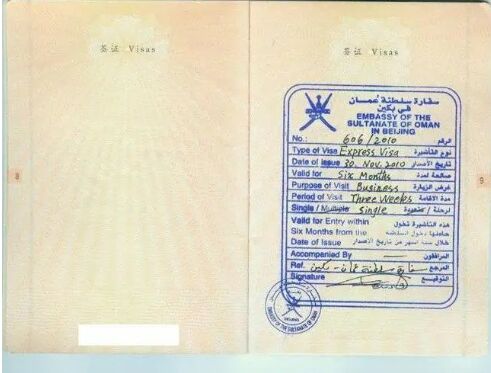 签证 Visas
8
签证 Visas
9
سفارة سلطنة عمان
في بكين
EMBASSY OF THE
SULTANATE OF OMAN
IN BEIJING
No.: 606/2010 الرقم
Type of Visa Express Visa نوع التأشيرة
Date of Issue 30. Nov. 2010 تاريخ الاصدار
Valid for Six Months صالحة لمدة
Purpose of Visit Business غرض الزيارة
Period of Visit Three Weeks مدة الاقامة
Single / Multiple Single لرحلة /
Valid for Entry within هذه التأشيرة تخول
Six Months from the حاملها دخول السلطنة
Date of Issue خلال ستة اشهر من تاريخ الاصدار
Accompanied By المرافقون
Ref. المرجع
Signature التوقيع
EMBASSY OF THE SULTANATE OF OMAN
BEIJING